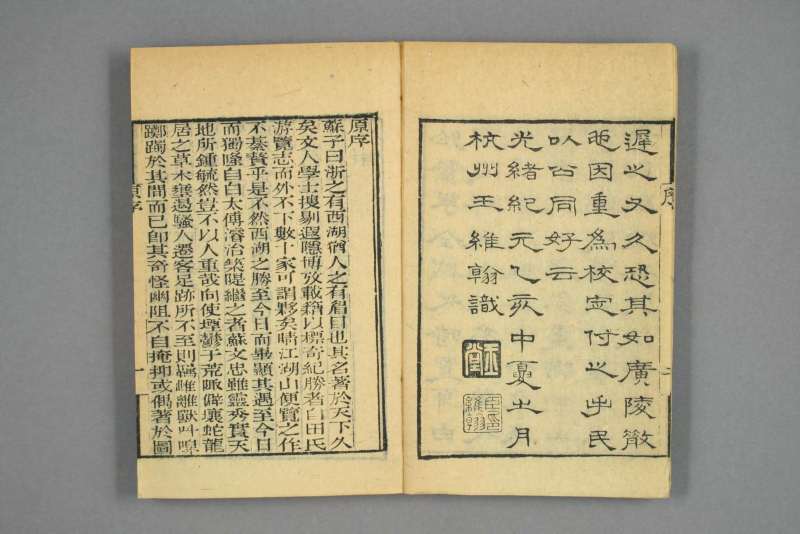 遲之又久恐其如廣陵散
也因重為校定付之手民
以公同好云
光緒紀元乙亥中夏之月
杭州王維翰識
序
原序
蘇子曰浙之有西湖猶人之有眉目也其名著於天下久
矣文人學士搜剔遐隱博攷載籍以標奇紀勝者自田氏
游覽志而外不下數十家可謂夥矣晴江湖山便覽之作
不綦贅乎是不然西湖之勝至今日而畢顯其遇至今日
而獨隆自白太傅濬治築隄繼之者蘇文忠雖靈秀實天
地所鍾毓然豈不以人重哉向使堙鬱于荒陬僻壤蛇龍
居之草木樂過騷人遷客足跡所不至則羈雌離獸叫嘷
躑躅於其間而已即其奇怪幽阻不自掩抑或偶著於圖
原序
一